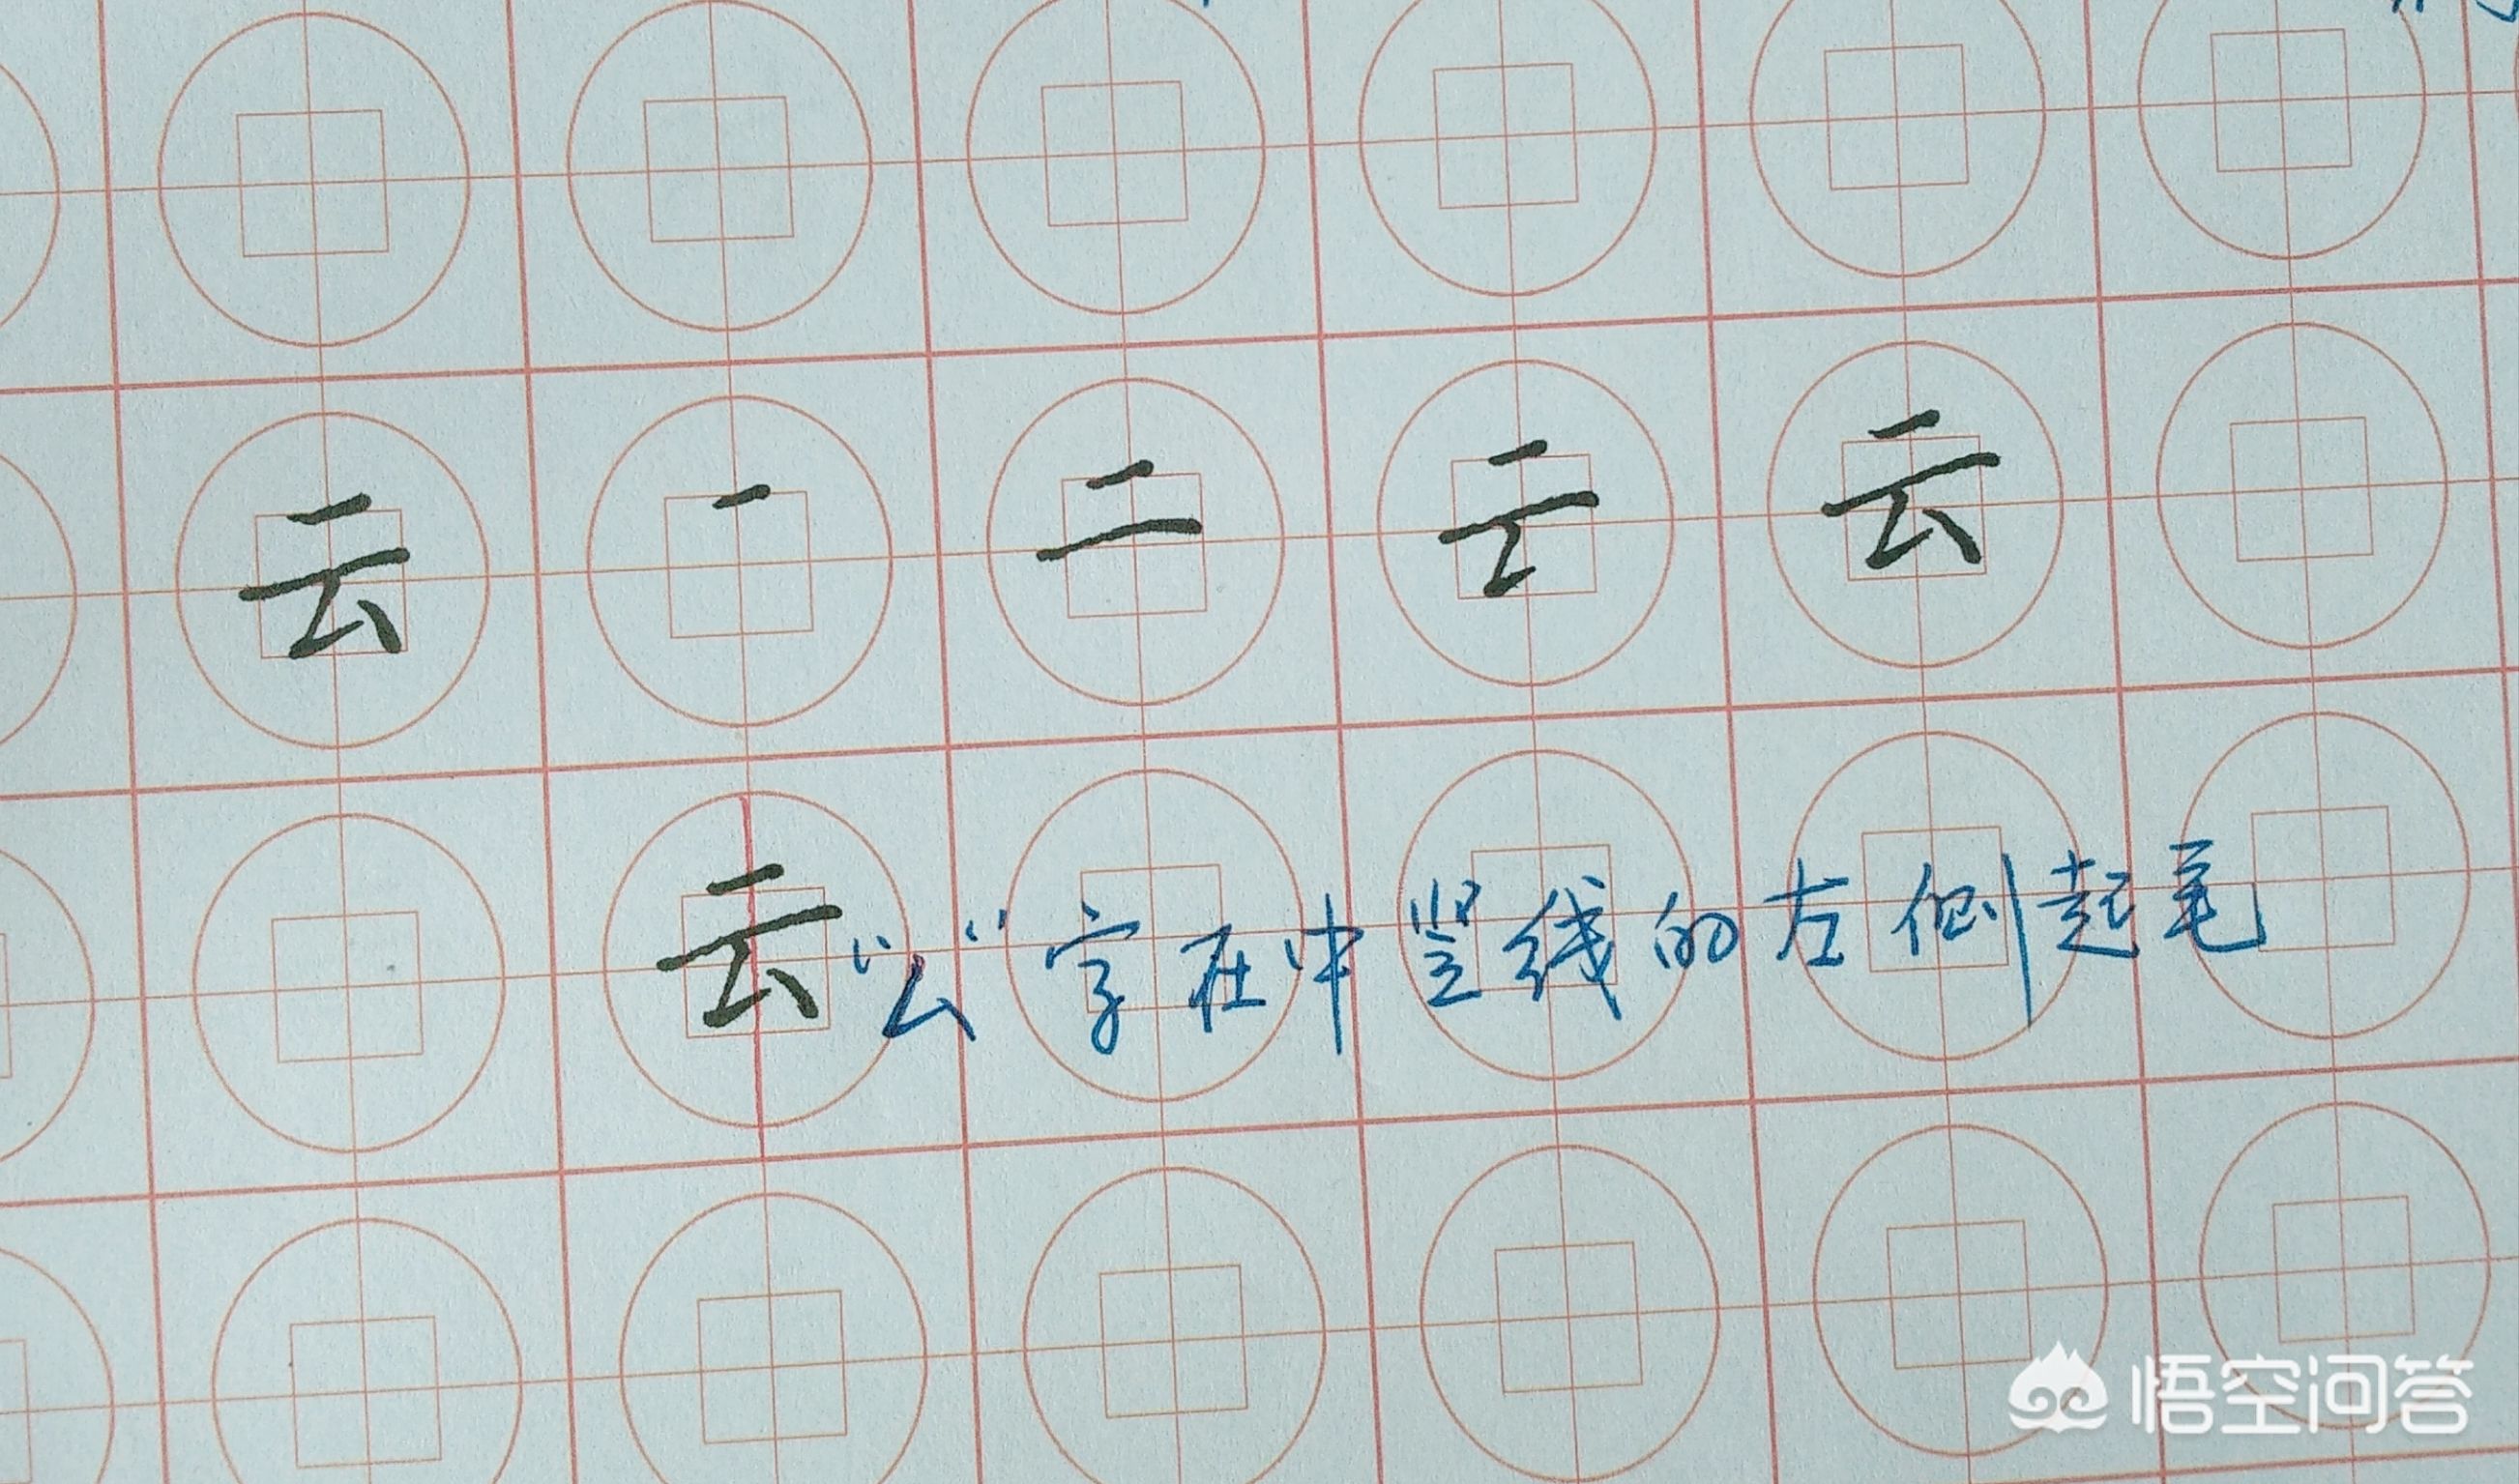 云 一 二 云 云
云 “厶”字在中竖线的左侧起笔
悟空问答